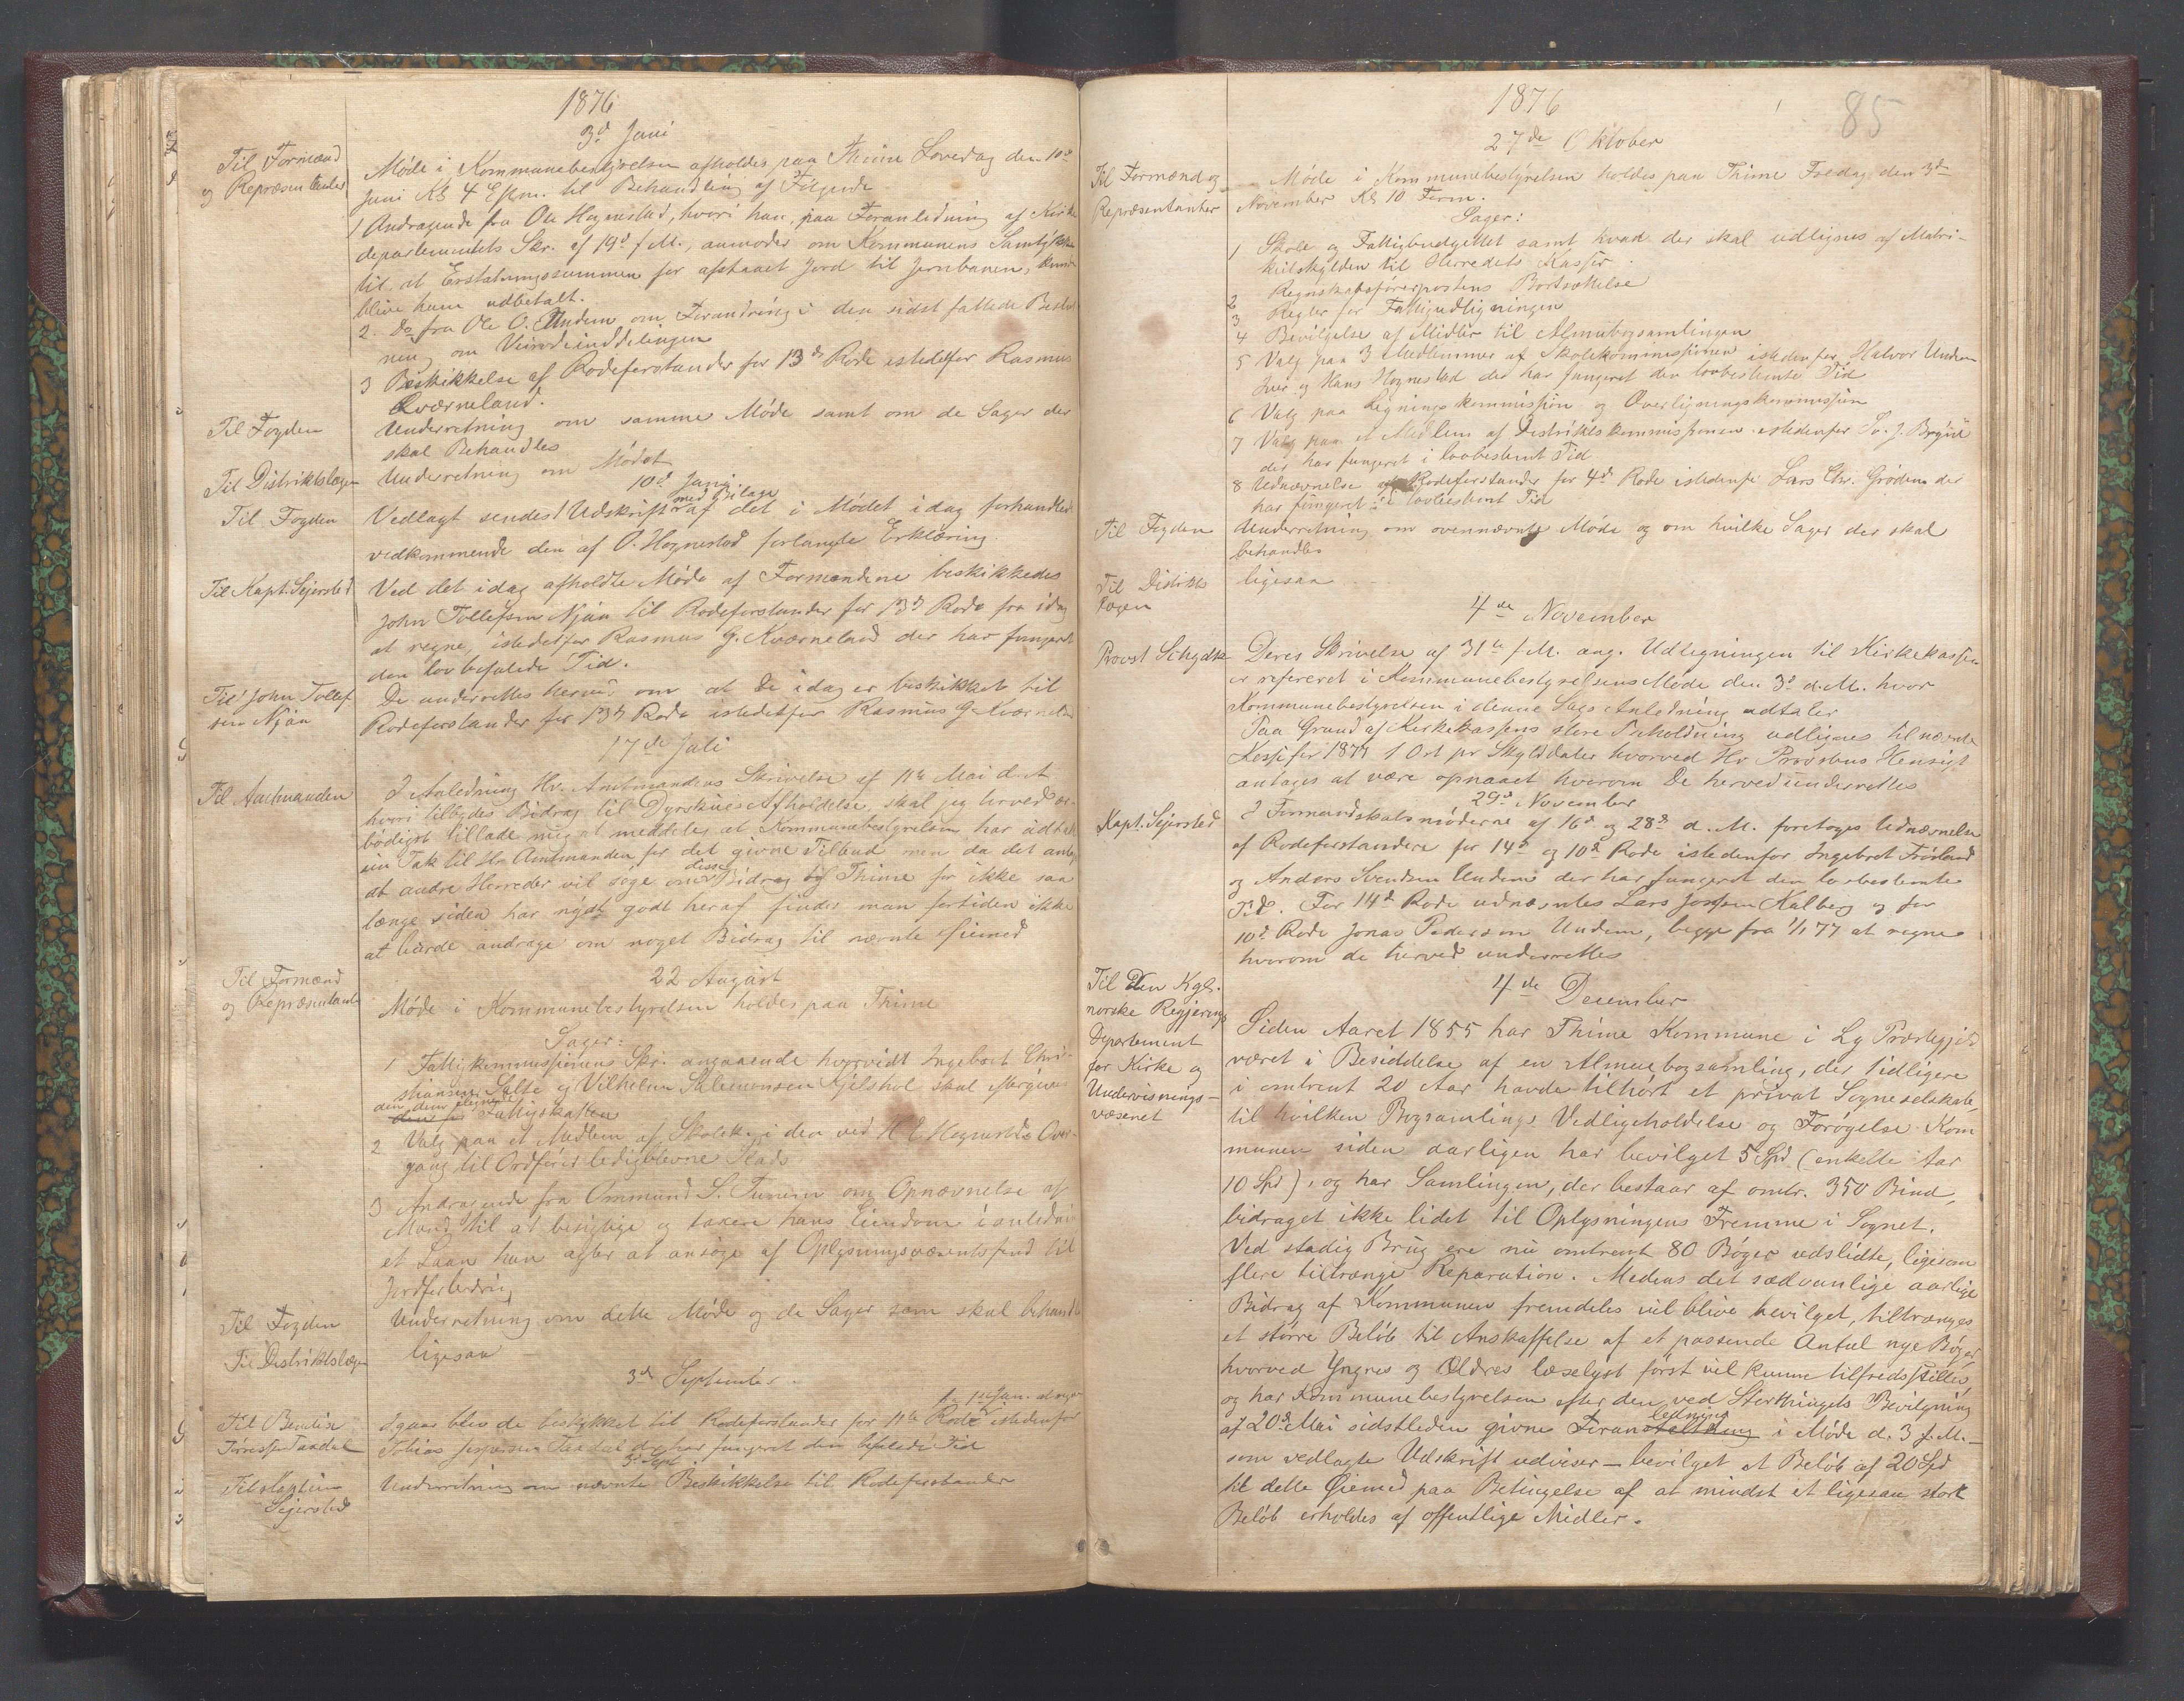 1876
3d Juni
Til Formænd
og Repræsentanter
Møde i Kommunebestyrelsen afholdes paa Thime Løverdag den 10d
Juni Kl 4 Efterm. til Behandling af Følgende
1 Andragende fra Ole Hognestad, hvori han, paa Foranledning af Kirke
departementets Skr. af 19d f. M., anmoder om Kommunens Samtykke
til at Erstatningssummen for afstaaet Jord til Jernbanen, kunde
blive ham udbetalt.
2. Do fra Ole O. Undem om Forandring i den sidst fattede Beslut
ning om Veirodeinddelingen
3 Beskikkelse af Rodeforstander for 13d Rode istedetfor Rasmus
Kværneland.
Til Fogden
Underretning om samme Møde samt om de Sager der
skal Behandles
Til Distriktslægen
Underretning om Mødet
10d Juni
Til Fogden
Vedlagt sendes Udskrift med Bilage af det i Mødet idag forhandlede
vedkommende den af O. Hognestad forlangte Erklæring
Til Kapt. Sejersted
Ved det idag afholdte Møde af Formændene beskikkedes
John Tollefsen Njaa til Rodeforstander for 13d Rode fra idag
at regne, istedetfor Rasmus G. Kværneland der har fungeret
den lovbefalede Tid.
Til John Tollef
sen Njaa
De underrettes herved om at De idag er beskikket til
Rodeforstander for 13d Rode istedetfor Rasmus G Kværneland
17de Juli
Til Amtmanden
I Anledning Hr. Amtmandens Skrivelse af 11te Mai d. A.
hvori tilbydes Bidrag til Dyrskues Afholdelse, skal jeg herved ær-
bødigst tillade mig at meddele, at Kommunebestyrelsen har udtalt
sin Tak til Hr. Amtmanden for det givne Tilbud men da det antages
at andre Herreder vil søge om disse Bidrag og Thime for ikke saa
længe siden har nydt godt heraf findes man fortiden ikke
at burde andrage om noget Bidrag til nævnte Øiemed
22 August
Til Formænd
og Repræsentanter
Møde i Kommunebestyrelsen holdes paa Thime
Sager:
1 Fattigkommissionens Skr. angaaende hvorvidt Ingeborg Chri-
stiansen Salte og Vilhelm Salemonsen Kjelshol skal eftergives
den dem
Fattigskatten
2 Valg paa et Medlem af Skolek. i den ved H E Hognestads Over-
gang til Ordfører ledigblevne Plads
3 Andragende fra Ommund S. Tunem om Opnævnelse af
Mænd til at besigtige og taxere hans Eiendom i anledning
et Laan han agter at ansøge af Oplysningsvæsenets fond til
Jordforbedring
Til Fogden
Underretning om dette Møde og de Sager som skal behandles
Til Distriktslægen
ligesaa
3d September
Til
Igaar blev de beskykket til Rodeforstander for 11te Rode fr. 1st Jan. at regne istedenfor
Tobias Jespersen Taxdal der har fungeret den befalede Tid
3d Sept
Til Kaptein
Sejersted
Underretning om nævnte Beskikkelse til Rodeforstander
1876
85
27de Oktober
Til Formænd og
Repræsentanter
Møde i Kommunebestyrelsen holdes paa Thime Fredag den 3die
November Kl 10 Form.
Sager:
1 Skole og Fattigbudgettet samt hvad der skal udlignes af Matri-
kulskylden til Herredets Kasser.
2 Regnskabsførerpostens Bortsættelse
3 Regler for Fattigudligningen
4 Bevilgelse af Midler til Almuebogsamlingen
5 Valg paa 3 Medlemmer af Skolekommissionen istedenfor Halvor Undem
og Hans Hognestad der har fungeret den lovbestemte Tid
6 Valg paa Ligningskommission og Overligningskommission
7 Valg paa et Medlem af Distriktskommissionen istedenfor Sv. J. Bryne
der har fungeret i lovbestemt Tid
8 Udnævnelse af Rodeforstander for 4de Rode istedenfor Lars Chr. Grødem der
har fungeret i lovbestemt Tid
Til Fogden
Underretning om ovennævnte Møde og om hvilke Sager der skal
behandles
Til Distrikts
lægen
ligesaa
4de November
Provst Schydtz
Deres Skrivelse af 31te f. M. ang. Udligningen til Kirkekassen
er refereret i Kommunebestyrelsens Møde den 3d d. M. hvor
Kommunebestyrelsen i denne Sags Anledning udtaler
Paa Grund af Kirkekassens store Beholdning udlignes til nævnte
Kasse for 1877 1 Ort pr Skylddaler hvorved Hr Provstens Hensigt
antages at være opnaaet hvorom De herved underrettes
29d November
Kapt. Sejersted
I Formandskabsmøderne af 16d og 28d d. M. foretoges Udnævnelse
af Rodeforstandere for 14d og 10d Rode istedenfor Ingebret Frøiland
og Anders Svendsen Undem der har fungeret den lovbestemte
Tid. For 14d Rode udnævntes Lars Josefsen Kalberg og for
10d Rode Jonas Pedersen Undem, begge fra 1/1 77 at regne
hvorom de herved underrettes
4de December
Til Den Kgl.
norske Regjerings
Departement
for Kirke og
Undervisnings-
væsenet
Siden Aaret 1855 har Thime Kommune i Ly Præstegjeld
været i Besiddelse af en Almuebogsamling, der tidligere
i omtrent 20 Aar havde tilhørt et privat Sogneselskab,
til hvilken Bogsamlings Vedligeholdelse og Forøgelse Kom
munen siden aarligen har bevilget 5 Spd (enkelte Aar
10 Spd), og har Samlingen, der bestaar af omtr. 350 Bind,
bidraget ikke lidet til Oplysningens Fremme i Sognet.
Ved stadig Brug ere nu omtrent 80 Bøger udslidte, ligesom
flere tiltrænge Reparation. Medens det sædvanlige aarlige
Bidrag af Kommunen fremdeles vil blive bevilget, tiltrænges
et større Beløb til Anskaffelse af et passende Antal nye Bøger,
hvorved Yngres og Ældres læselyst først vil kunne tilfredsstilles,
og har Kommunebestyrelsen efter den ved Storthingets Bevilgning
af 20d Mai sidstleden givne Foranledning i Møde d. 3 f. M. —
som vedlagte Udskrift udviser — bevilget et Beløb af 20 Spd
til dette Øiemed paa Betingelse af at mindst et ligesaa stort
Beløb erholdes af offentlige Midler.